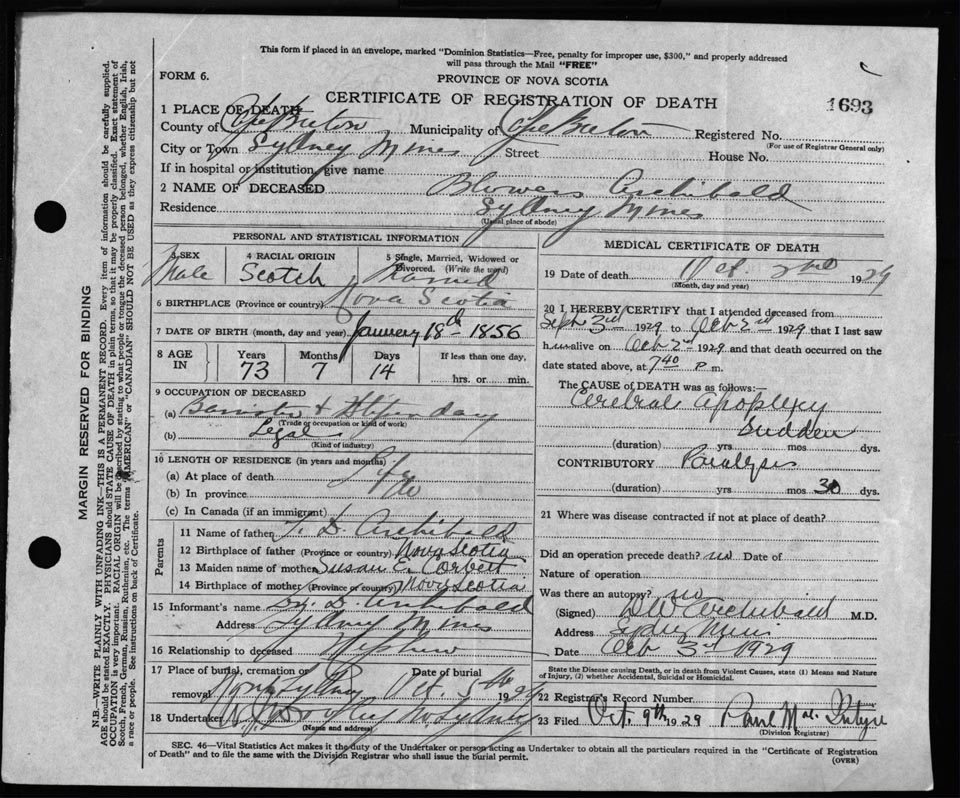 This form if placed in an envelope, marked "Dominion Statistics—Free, penalty for improper use, $300," and properly addressed
will pass through the Mail "FREE"
FORM 6.
PROVINCE OF NOVA SCOTIA
CERTIFICATE OF REGISTRATION OF DEATH
1693
1 PLACE OF DEATH
County of Cape Breton Municipality of Cape Breton Registered No.
(For use of Registrar General only)
City or Town Sydney Mines Street House No.
If in hospital or institution, give name
2 NAME OF DECEASED Blowers Archibald
Residence Sydney Mines
(Usual place of abode)
PERSONAL AND STATISTICAL INFORMATION
3 SEX 4 RACIAL ORIGIN 5 Single, Married, Widowed or Divorced. (Write the word)
Male Scotch Married
6 BIRTHPLACE (Province or country) Nova Scotia
7 DATE OF BIRTH (month, day and year) January 18th 1856
8 AGE IN Years Months Days If less than one day,
73 7 14 hrs. or min.
9 OCCUPATION OF DECEASED
(a) Barrister & Stipendary
(Trade or occupation or kind of work)
(b) Legal
(Kind of industry)
10 LENGTH OF RESIDENCE (in years and months)
(a) At place of death Life
(b) In province do
(c) In Canada (if an immigrant)
Parents
11 Name of father T. D. Archibald
12 Birthplace of father (Province or country) Nova Scotia
13 Maiden name of mother Susan E. Corbett
14 Birthplace of mother (Province or country) Nova Scotia
15 Informant's name D. Archibald
Address Sydney Mines
16 Relationship to deceased Nephew
17 Place of burial, cremation or removal Date of burial
North Sydney Oct 5th 1929
18 Undertaker N. Sydney
(Name and address)
MEDICAL CERTIFICATE OF DEATH
19 Date of death Oct. 2nd 1929
(Month, day and year)
20 I HEREBY CERTIFY that I attended deceased from
Sept 3rd 1929 to Oct 2nd 1929 that I last saw
him alive on Oct 2nd 1929 and that death occurred on the
date stated above, at 7 40 P m.
The CAUSE OF DEATH was as follows:—
Cerebral apoplexy
Sudden
(duration) yrs mos dys.
CONTRIBUTORY Paralysis
(duration) yrs mos 30 dys.
21 Where was disease contracted if not at place of death?
Did an operation precede death? no Date of
Nature of operation
Was there an autopsy? no
(Signed) DW Archibald M.D.
Address Sydney Mines
Date Oct 3rd 1929
State the Disease causing Death, or in death from Violent Causes, state (1) Means and Nature
of Injury, (2) whether Accidental, Suicidal or Homicidal.
22 Registrar's Record Number
23 Filed Oct. 9th 1929 Mac Intyre
(Division Registrar)
SEC. 46—Vital Statistics Act makes it the duty of the Undertaker or person acting as Undertaker to obtain all the particulars required in the "Certificate of Registration
of Death" and to file the same with the Division Registrar who shall issue the burial permit.
(OVER)
MARGIN RESERVED FOR BINDING
N.B.—WRITE PLAINLY WITH UNFADING INK—THIS IS A PERMANENT RECORD. Every item of information should be carefully supplied.
AGE should be stated EXACTLY. PHYSICIANS should STATE CAUSE OF DEATH in plain terms, so that it may be properly classified. Exact statement of
OCCUPATION is very important. RACIAL ORIGIN will be described by stating to what people or tongue the deceased person belonged, whether English, Irish,
Scotch, French, German, Russian, Ruthenian, etc. The terms "AMERICAN" or "CANADIAN" SHOULD NOT BE USED as they express citizenship but not
a race or people. See instructions on back of Certificate.